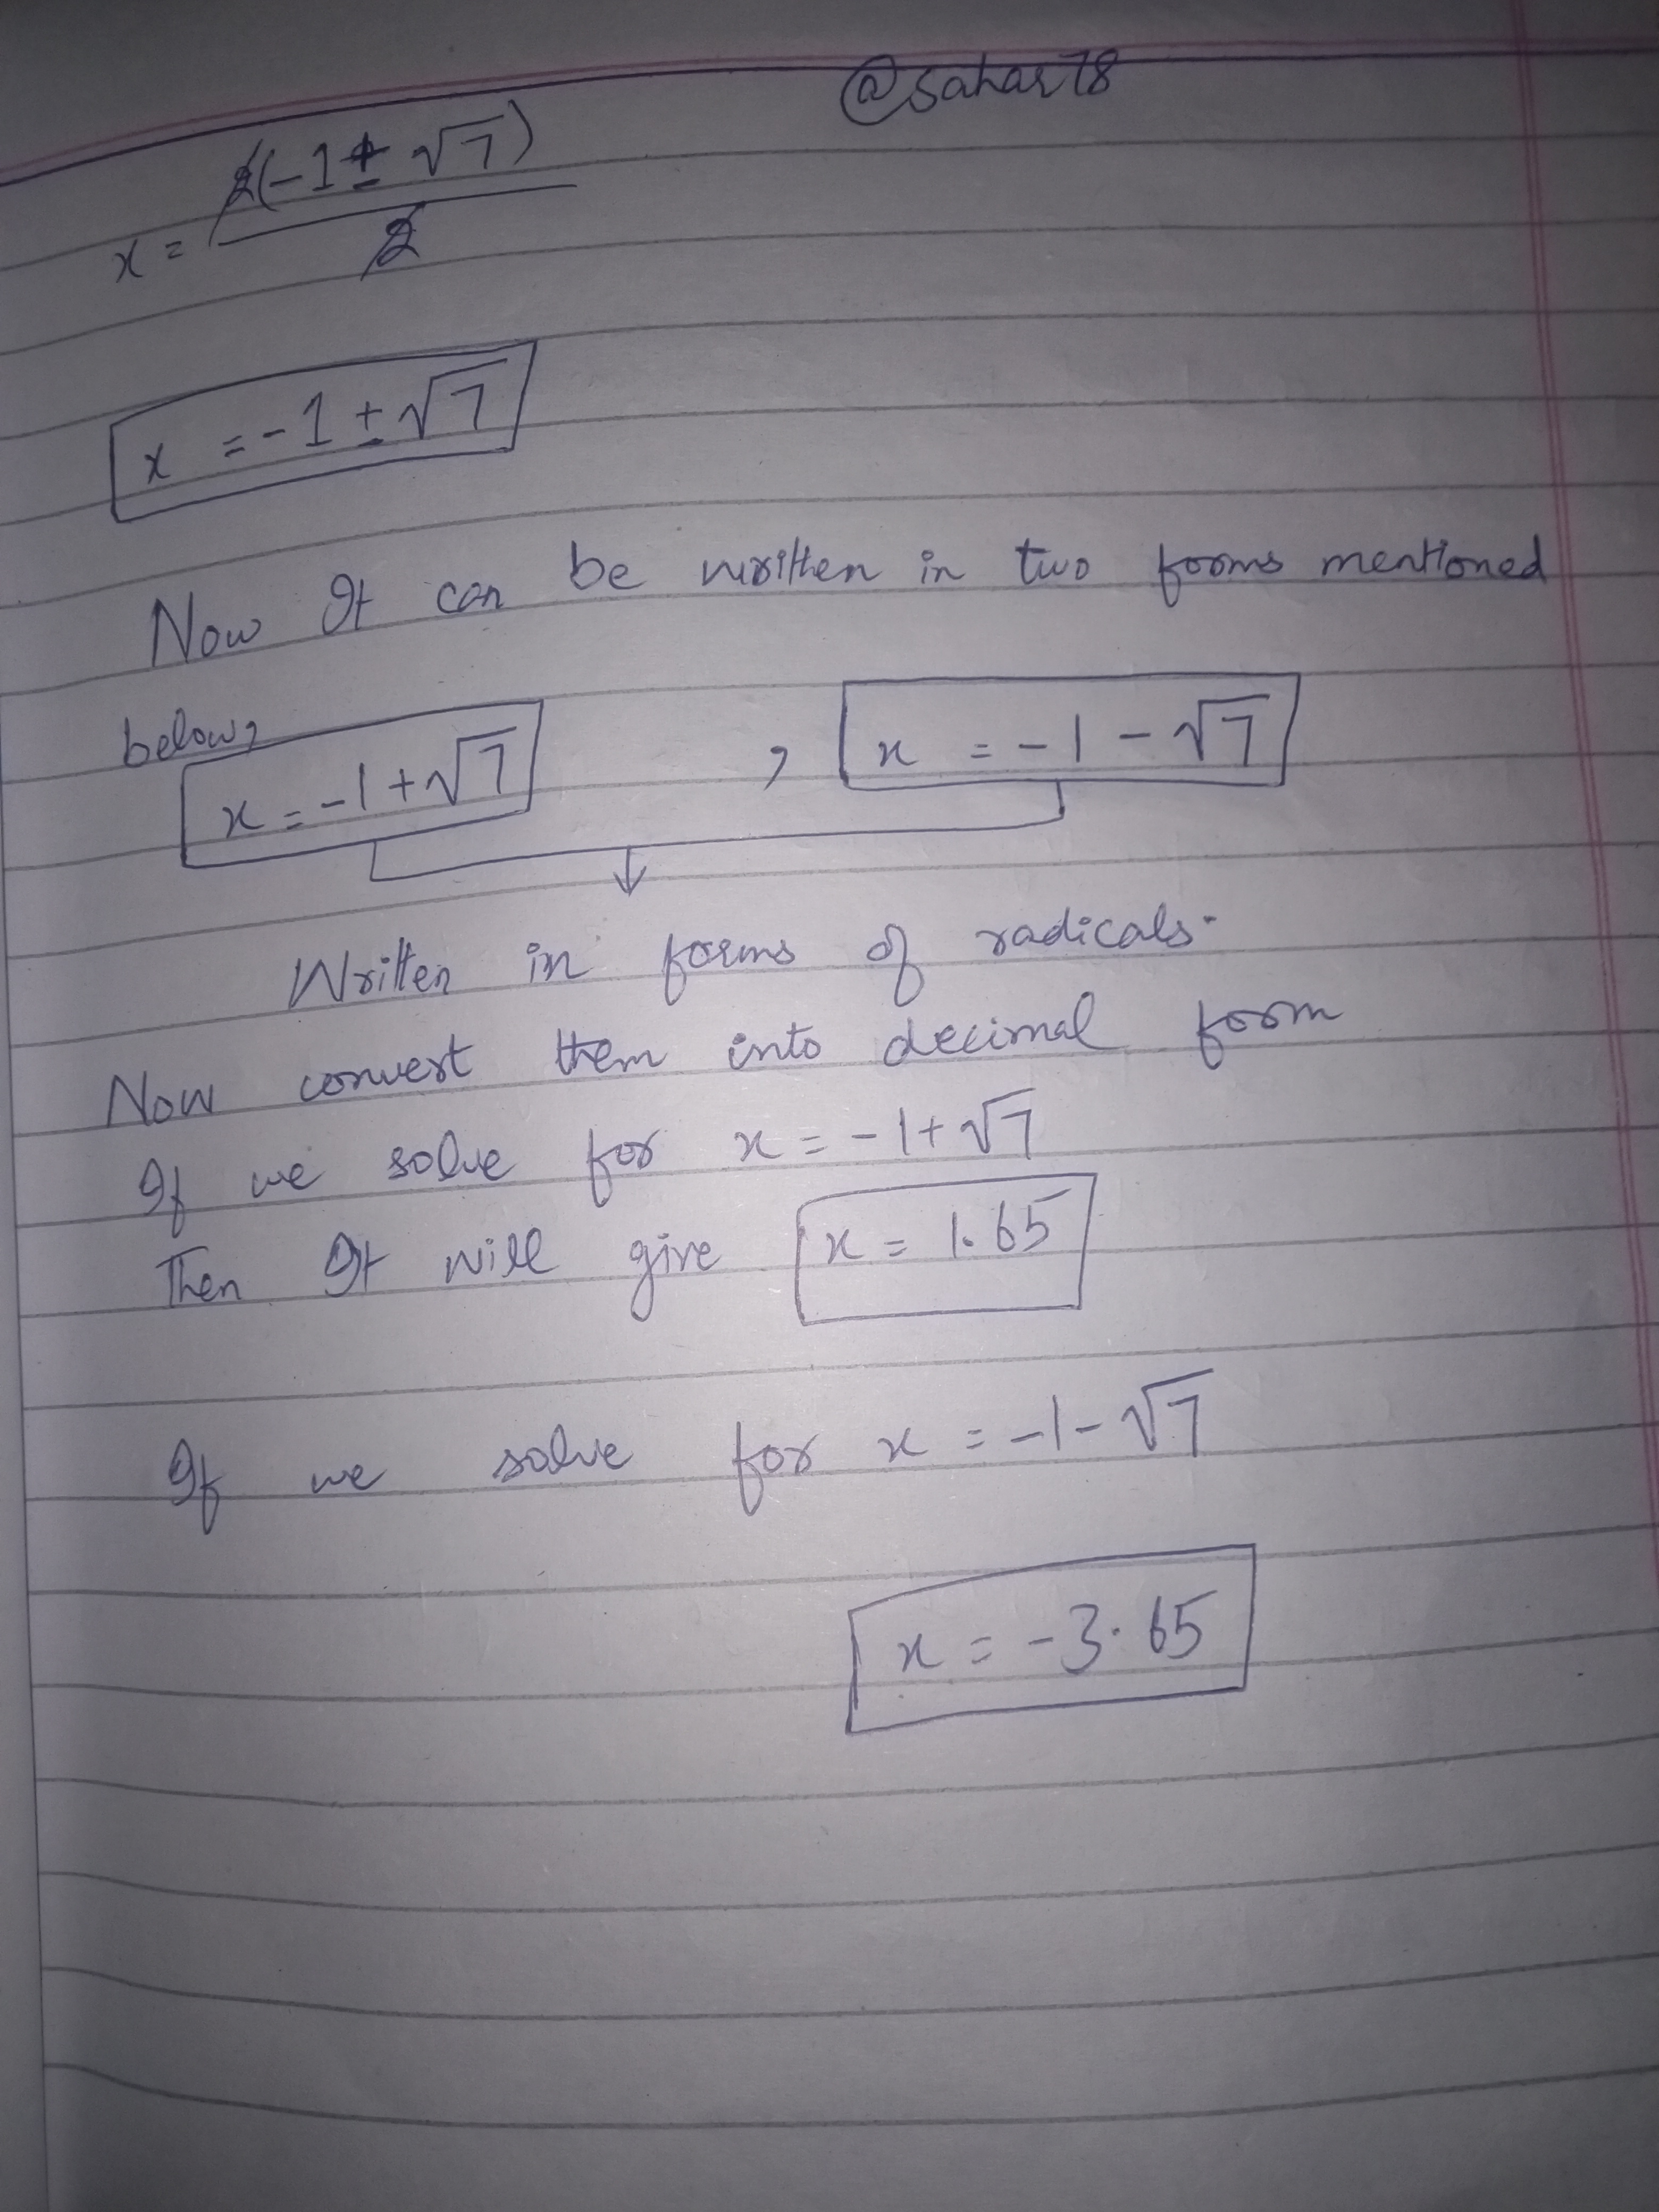 @sahar78
x = 2(-1 ± √7)
2
x = -1 ± √7
Now It can be written in two forms mentioned
below,
x = -1 + √7 , x = -1 - √7
Written in forms of radicals.
Now convert them into decimal form
If we solve for x = -1 + √7
Then It will give x = 1.65
If we solve for x = -1 - √7
x = -3.65